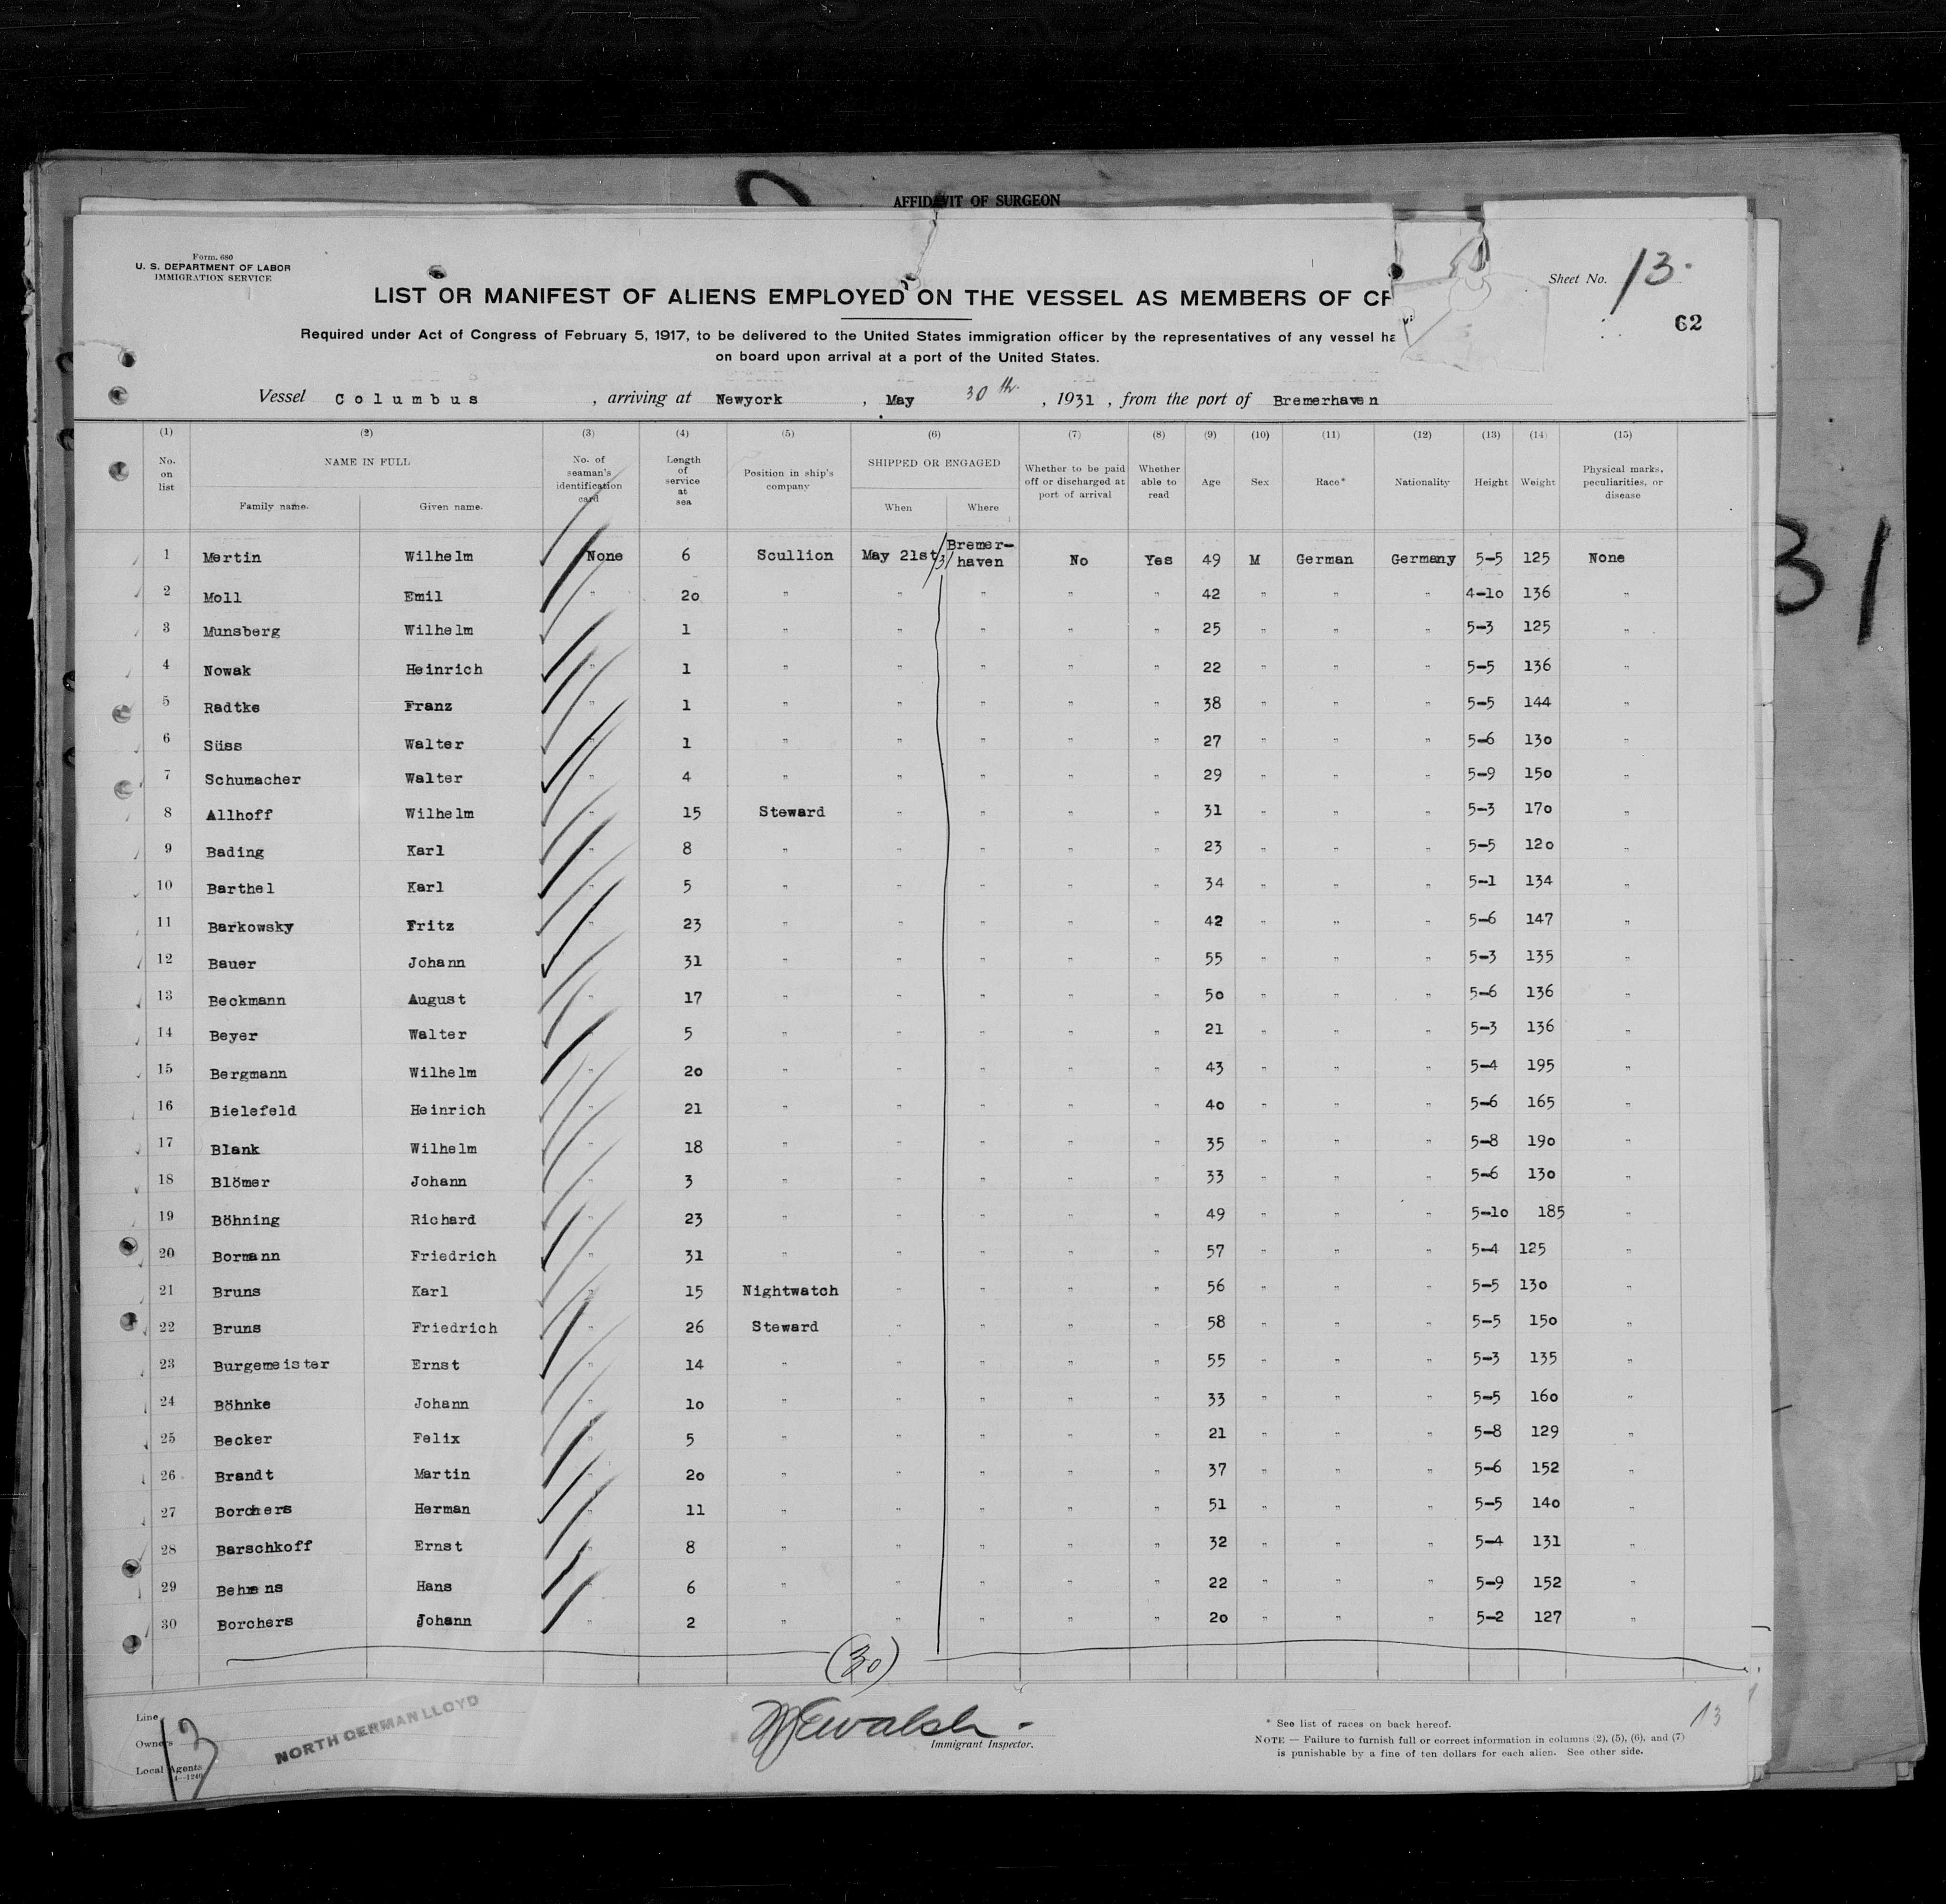 AFFIDAVIT OF SURGEON
Form. 680
U. S. DEPARTMENT OF LABOR
IMMIGRATION SERVICE
Sheet No. 13.
62
LIST OR MANIFEST OF ALIENS EMPLOYED ON THE VESSEL AS MEMBERS OF
Required under Act of Congress of February 5, 1917, to be delivered to the United States immigration officer by the representatives of any vessel
on board upon arrival at a port of the United States.
Vessel Columbus , arriving at Newyork , May 30th. , 1931 , from the port of Bremerhaven
(1) (2) (3) (4) (5) (6) (7) (8) (9) (10) (11) (12) (13) (14) (15)
No. on list NAME IN FULL Family name. Given name. No. of seaman's identification card Length of service at sea Position in ship's company SHIPPED OR ENGAGED When Where Whether to be paid off or discharged at port of arrival Whether able to read Age Sex Race* Nationality Height Weight Physical marks, peculiarities, or disease
1 Mertin Wilhelm None 6 Scullion May 21st/31 Bremer-haven No Yes 49 M German Germany 5-5 125 None
2 Moll Emil " 20 " " " " " 42 " " " 4-10 136 "
3 Munsberg Wilhelm " 1 " " " " " 25 " " " 5-3 125 "
4 Nowak Heinrich " 1 " " " " " 22 " " " 5-5 136 "
5 Radtke Franz " 1 " " " " " 38 " " " 5-5 144 "
6 Süss Walter " 1 " " " " " 27 " " " 5-6 130 "
7 Schumacher Walter " 4 " " " " " 29 " " " 5-9 150 "
8 Allhoff Wilhelm " 15 Steward " " " " 31 " " " 5-3 170 "
9 Bading Karl " 8 " " " " " 23 " " " 5-5 120 "
10 Barthel Karl " 5 " " " " " 34 " " " 5-1 134 "
11 Barkowsky Fritz " 23 " " " " " 42 " " " 5-6 147 "
12 Bauer Johann " 31 " " " " " 55 " " " 5-3 135 "
13 Beckmann August " 17 " " " " " 50 " " " 5-6 136 "
14 Beyer Walter " 5 " " " " " 21 " " " 5-3 136 "
15 Bergmann Wilhelm " 20 " " " " " 43 " " " 5-4 195 "
16 Bielefeld Heinrich " 21 " " " " " 40 " " " 5-6 165 "
17 Blank Wilhelm " 18 " " " " " 35 " " " 5-8 190 "
18 Blömer Johann " 3 " " " " " 33 " " " 5-6 130 "
19 Böhning Richard " 23 " " " " " 49 " " " 5-10 185 "
20 Bormann Friedrich " 31 " " " " " 57 " " " 5-4 125 "
21 Bruns Karl " 15 Nightwatch " " " " 56 " " " 5-5 130 "
22 Bruns Friedrich " 26 Steward " " " " 58 " " " 5-5 150 "
23 Burgemeister Ernst " 14 " " " " " 55 " " " 5-3 135 "
24 Böhnke Johann " 10 " " " " " 33 " " " 5-5 160 "
25 Becker Felix " 5 " " " " " 21 " " " 5-8 129 "
26 Brandt Martin " 20 " " " " " 37 " " " 5-6 152 "
27 Borchers Herman " 11 " " " " " 51 " " " 5-5 140 "
28 Barschkoff Ernst " 8 " " " " " 32 " " " 5-4 131 "
29 Behrens Hans " 6 " " " " " 22 " " " 5-9 152 "
30 Borchers Johann " 2 " " " " " 20 " " " 5-2 127 "
(30)
Line
Owners
Local Agents
13
NORTH GERMAN LLOYD
Walsh
Immigrant Inspector.
* See list of races on back hereof.
NOTE — Failure to furnish full or correct information in columns (2), (5), (6), and (7)
is punishable by a fine of ten dollars for each alien. See other side.
13
31